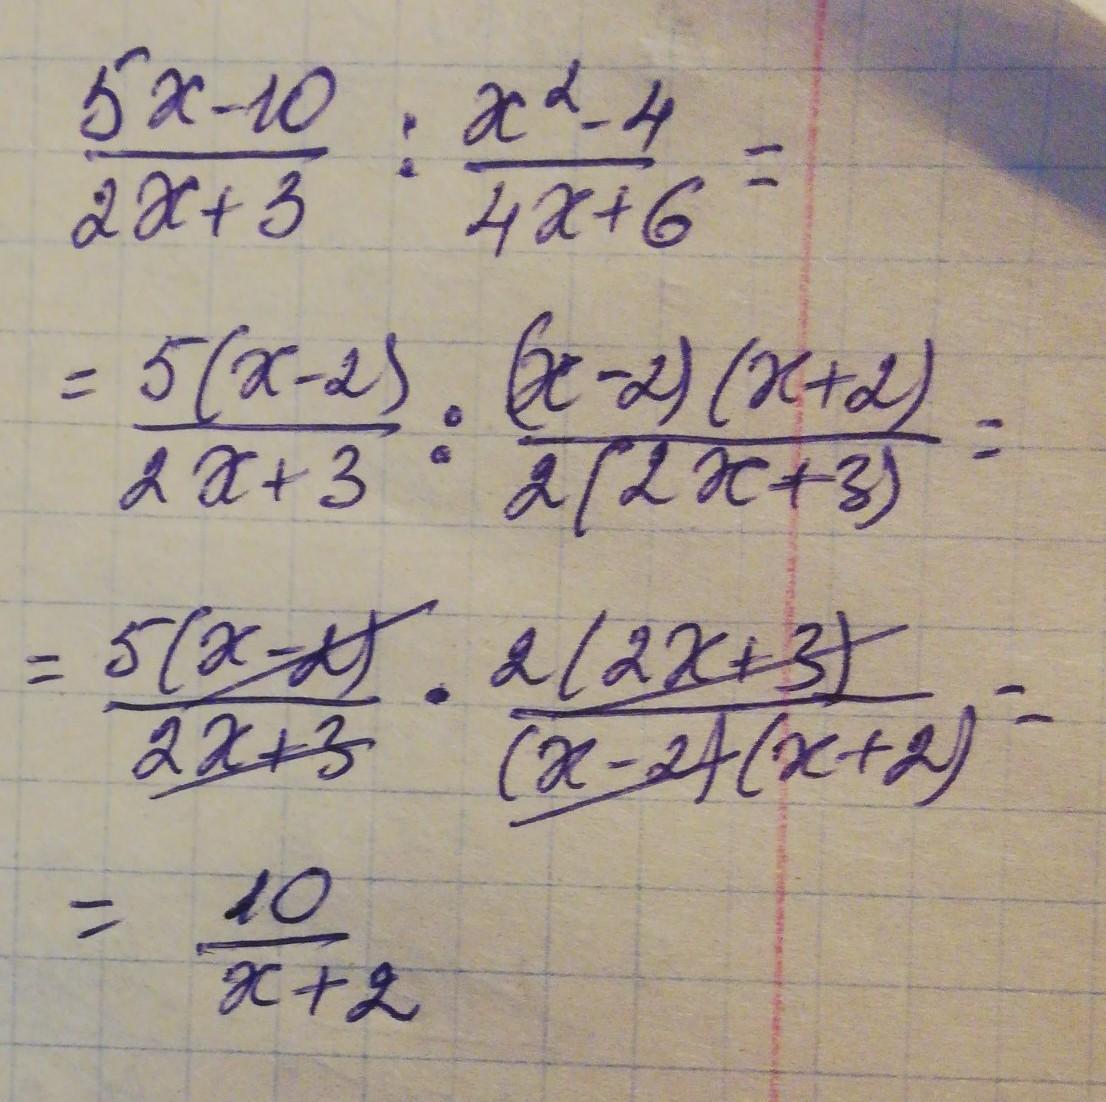 (5x-10)/(2x+3) : (x²-4)/(4x+6) =
= 5(x-2)/(2x+3) : (x-2)(x+2)/(2(2x+3)) =
= 5(x-2)/(2x+3) · 2(2x+3)/((x-2)(x+2)) =
= 10/(x+2)